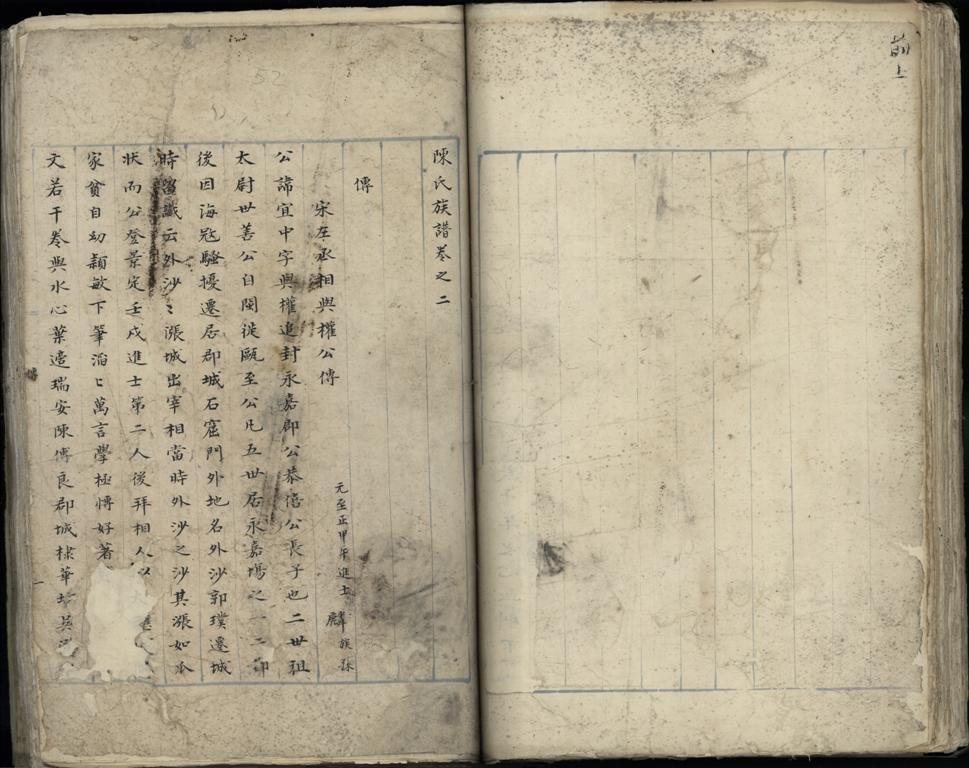 上
陳氏族譜卷之二
傳
宋左丞相與權公傳
元至正甲午進士 麟 族孫
公諱宜中字與權追封永嘉郡公恭僖公長子也二世祖
太尉世善公自閩徙甌至公凡五世居永嘉場之一二都
後因海寇騷擾遷居郡城石窟門外地名外沙郭璞遷城
時留讖云外沙〻漲城出宰相當時外沙之沙其漲如
狀而公登景定壬戌進士第二人後拜相人
家貧自幼穎敏下筆滔〻萬言學極博好著
文若干卷與水心葉適瑞安陳傅良郡城棣華坊吳
一
52